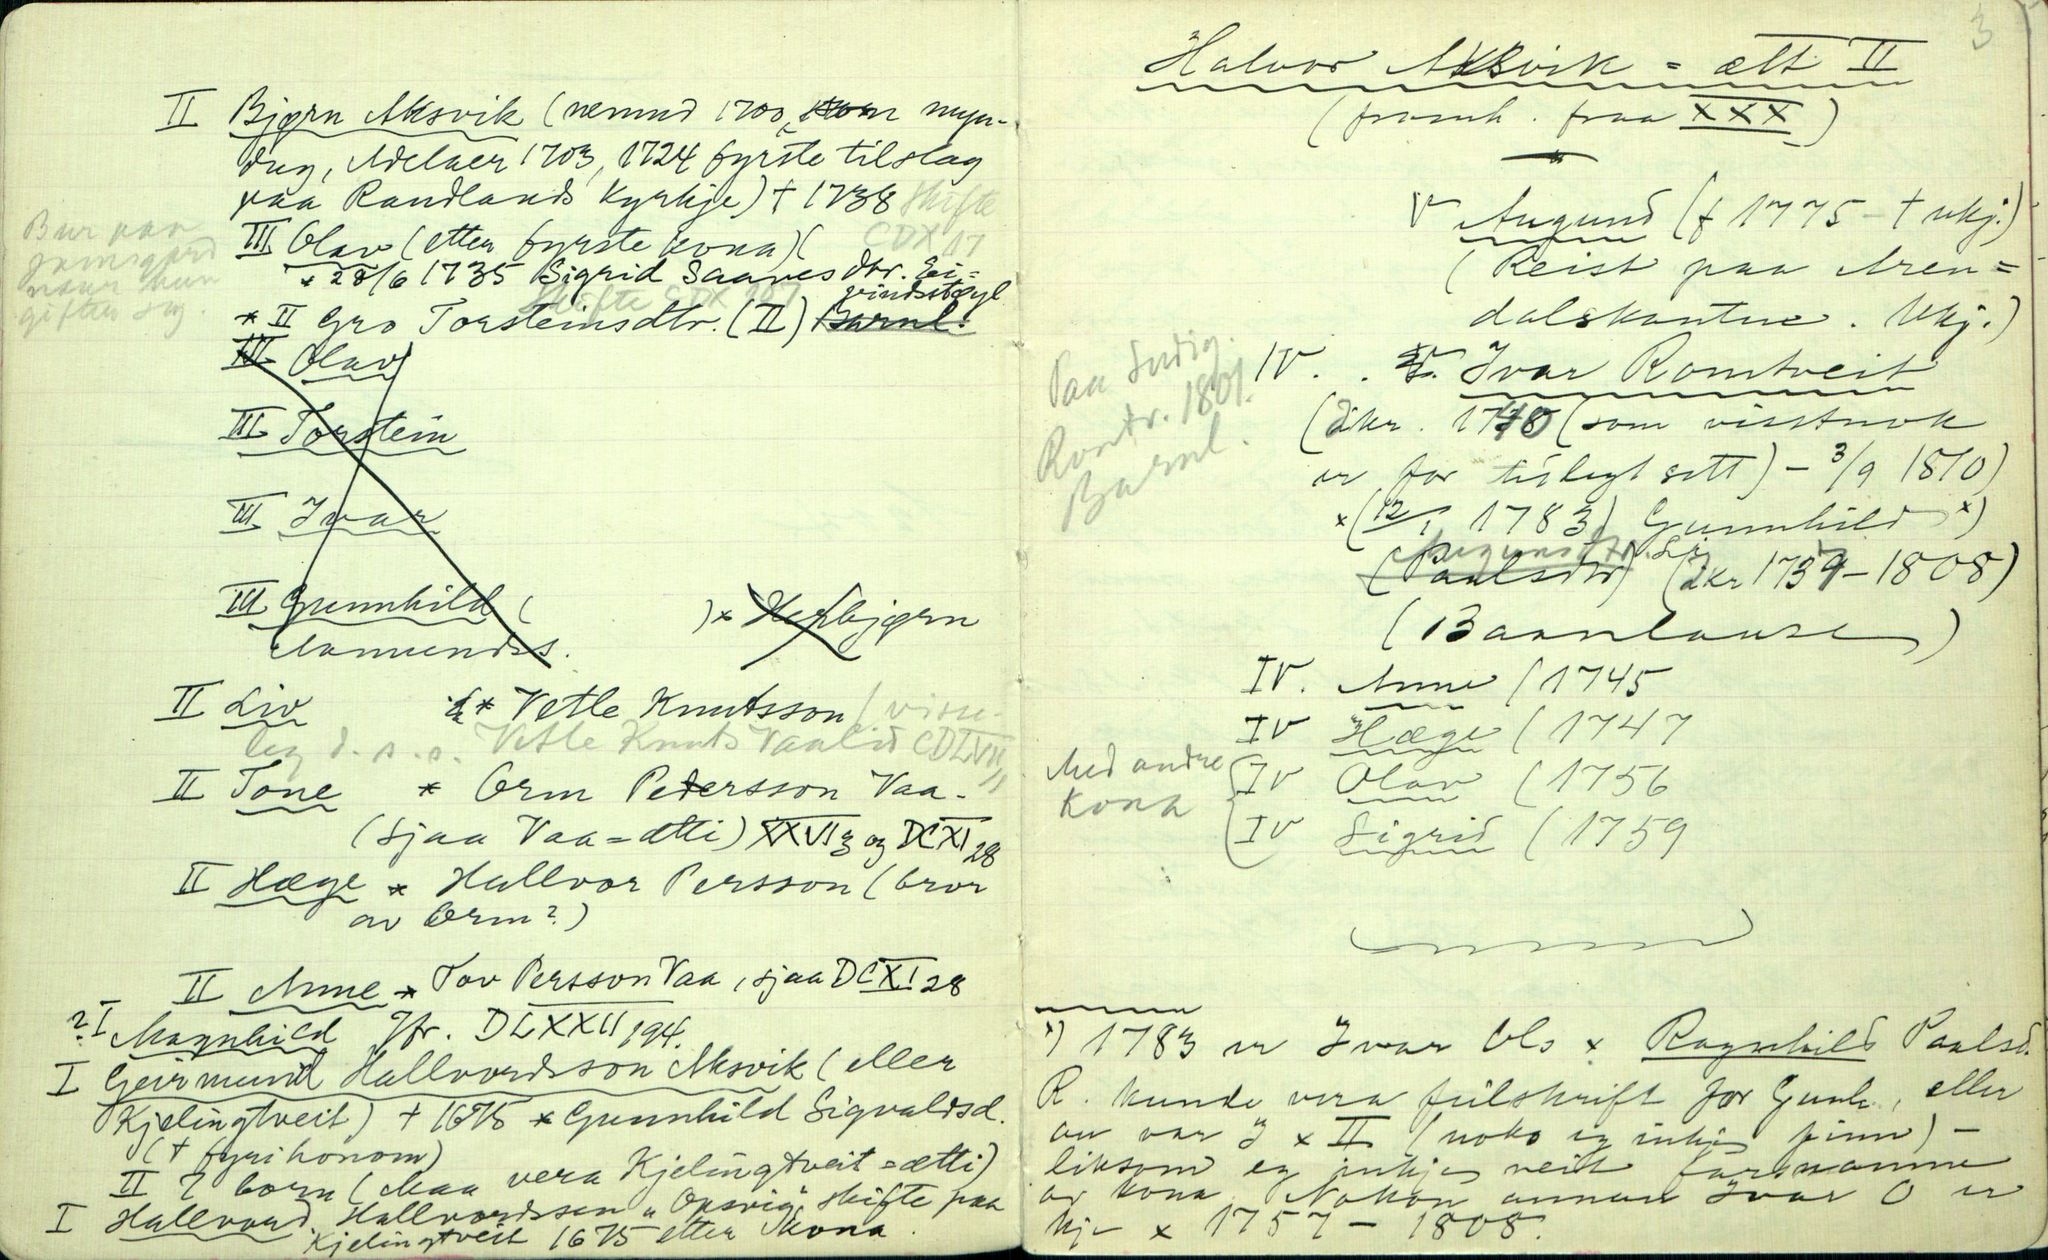 II Bjørn Aksvik (nemnd 1700, som myn-
dug, Adelaer 1703, 1724 fyrste tilslag
paa Randlands kyrkje) † 1738 Skifte
CDX 17
III Olav (etter fyrste kona) (
Bur paa
naar han
gifter seg.
× 28/6 1735 Sigrid Saavesdtr. Ei-
vindstøyl
Skifte CDX
× II Gro Torsteinsdtr. (II) Barnl.
III Olav
III Torstein
III Ivar
III Gunnhild ( ) × Herbjørn
Aamundss.
II Liv × Vetle Knutsson (visse-
leg d. s. s. Vetle Knuts Vaalid CDLVII
11
II Tone × Orm Petersson Vaa-
(sjaa Vaa=ætti) XXVI3 og DCXI 28
II Hæge × Hallvor Persson (bror
av Orm?)
II Anne × Tov Persson Vaa, sjaa DCXI 28
? I Magnhild Jfr. DLXXII 194.
I Geirmund Hallvordsson Aksvik (eller
Kjelingtveit) † 1675 × Gunnhild Sigvaldsd.
(† fyri honom)
II ? born (Maa vera Kjelingtveit=ætti)
I Hallvord Hallvordssen "Opsvig" skifte paa
Kjelingtveit 1675 etter kona.
3
Halvor Aksvik = ætt II
(framh. fraa XXX)
V Augund (f 1775 – † ukj.)
(Reist paa Aren=
dalskantne. Ukj.)
Paa Sudig.
Romtv. 1801.
Barnl.
IV. Ivar Romtveit
(ikr. 1740 (som visstnok
er for tidlegt sett) – 3/9 1810)
× (12/1 1783) Gunnhild ×)
Augunsdtr.
(Paalsdtr) (ikr 1739 – 1808)
(Baanlause)
IV. Anne (1745
IV Hæge (1747
Med andre
kona
IV Olav (1756
IV Sigrid (1759
×) 1783 er Ivar Ols × Ragnhild Paalsd.
R. kunde vera feilskrift for Gunh., eller
au var I × II (noko eg inkje finn) –
liksom eg inkje veit farsnamne
av kona. Nokon annan Ivar O er
kje × 1757 – 1808.